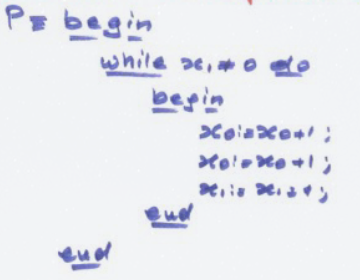 P ≡ begin
while x₁ ≠ 0 do
begin
x₀:=x₀+1;
x₀:=x₀+1;
x₁:=
end
end